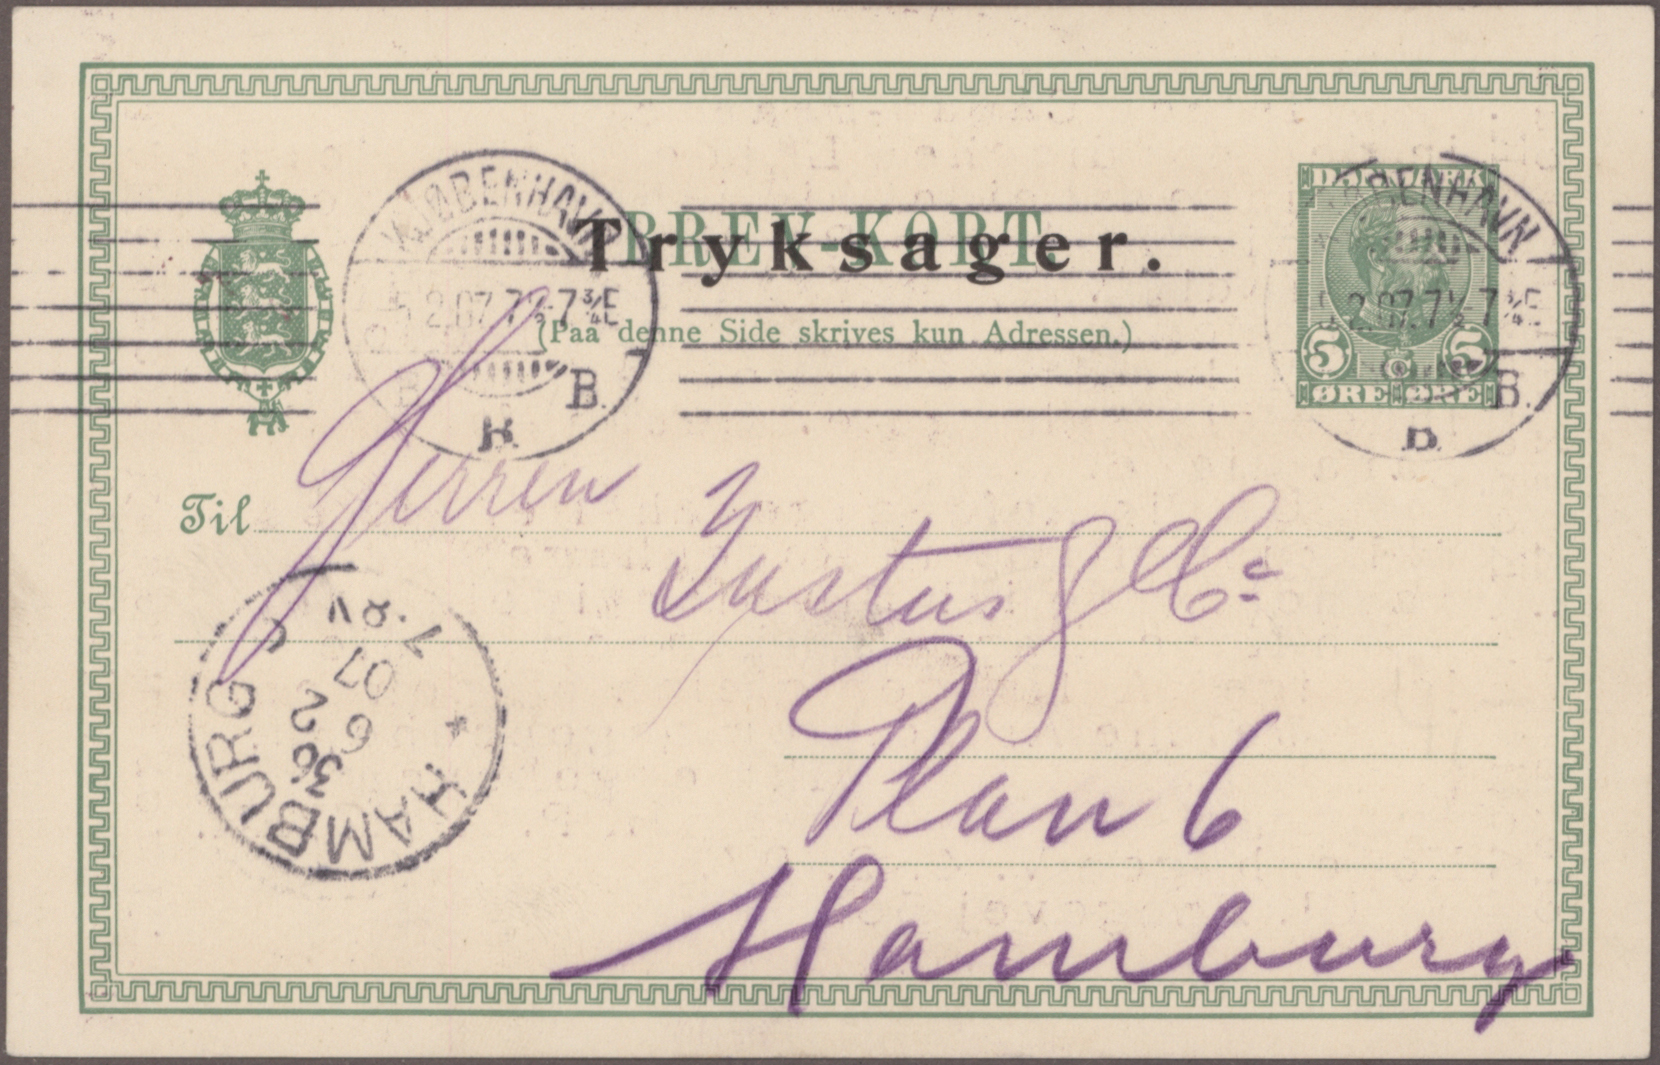 BREV-KORT
Tryksager.
(Paa denne Side skrives kun Adressen.)
DANMARK
5 5
ØRE ØRE
KJØBENHAVN
5.2.07.7½-7¾E
B.
B.
KJØBENHAVN
5.2.07.7½-7¾E
B.
B.
Til
Herren
Justus & Co
Plan 6
Hamburg
HAMBURG
36
6 2
07
7-8V